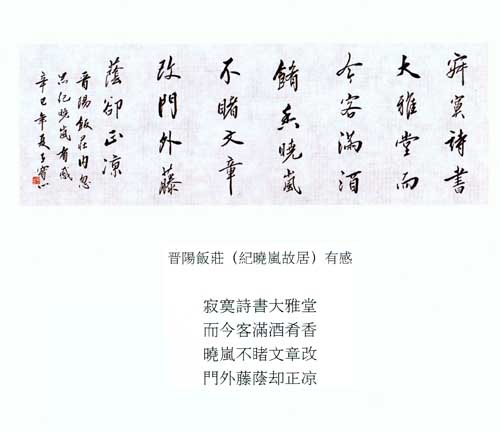 寂寞詩書
大雅堂而
今客滿酒
餚香曉嵐
不睹文章
改門外藤
蔭卻正凉
晋陽飯莊內忽
思紀曉嵐有感
辛巳年夏
晋陽飯莊（紀曉嵐故居）有感
寂寞詩書大雅堂
而今客滿酒肴香
曉嵐不睹文章改
門外藤蔭却正凉